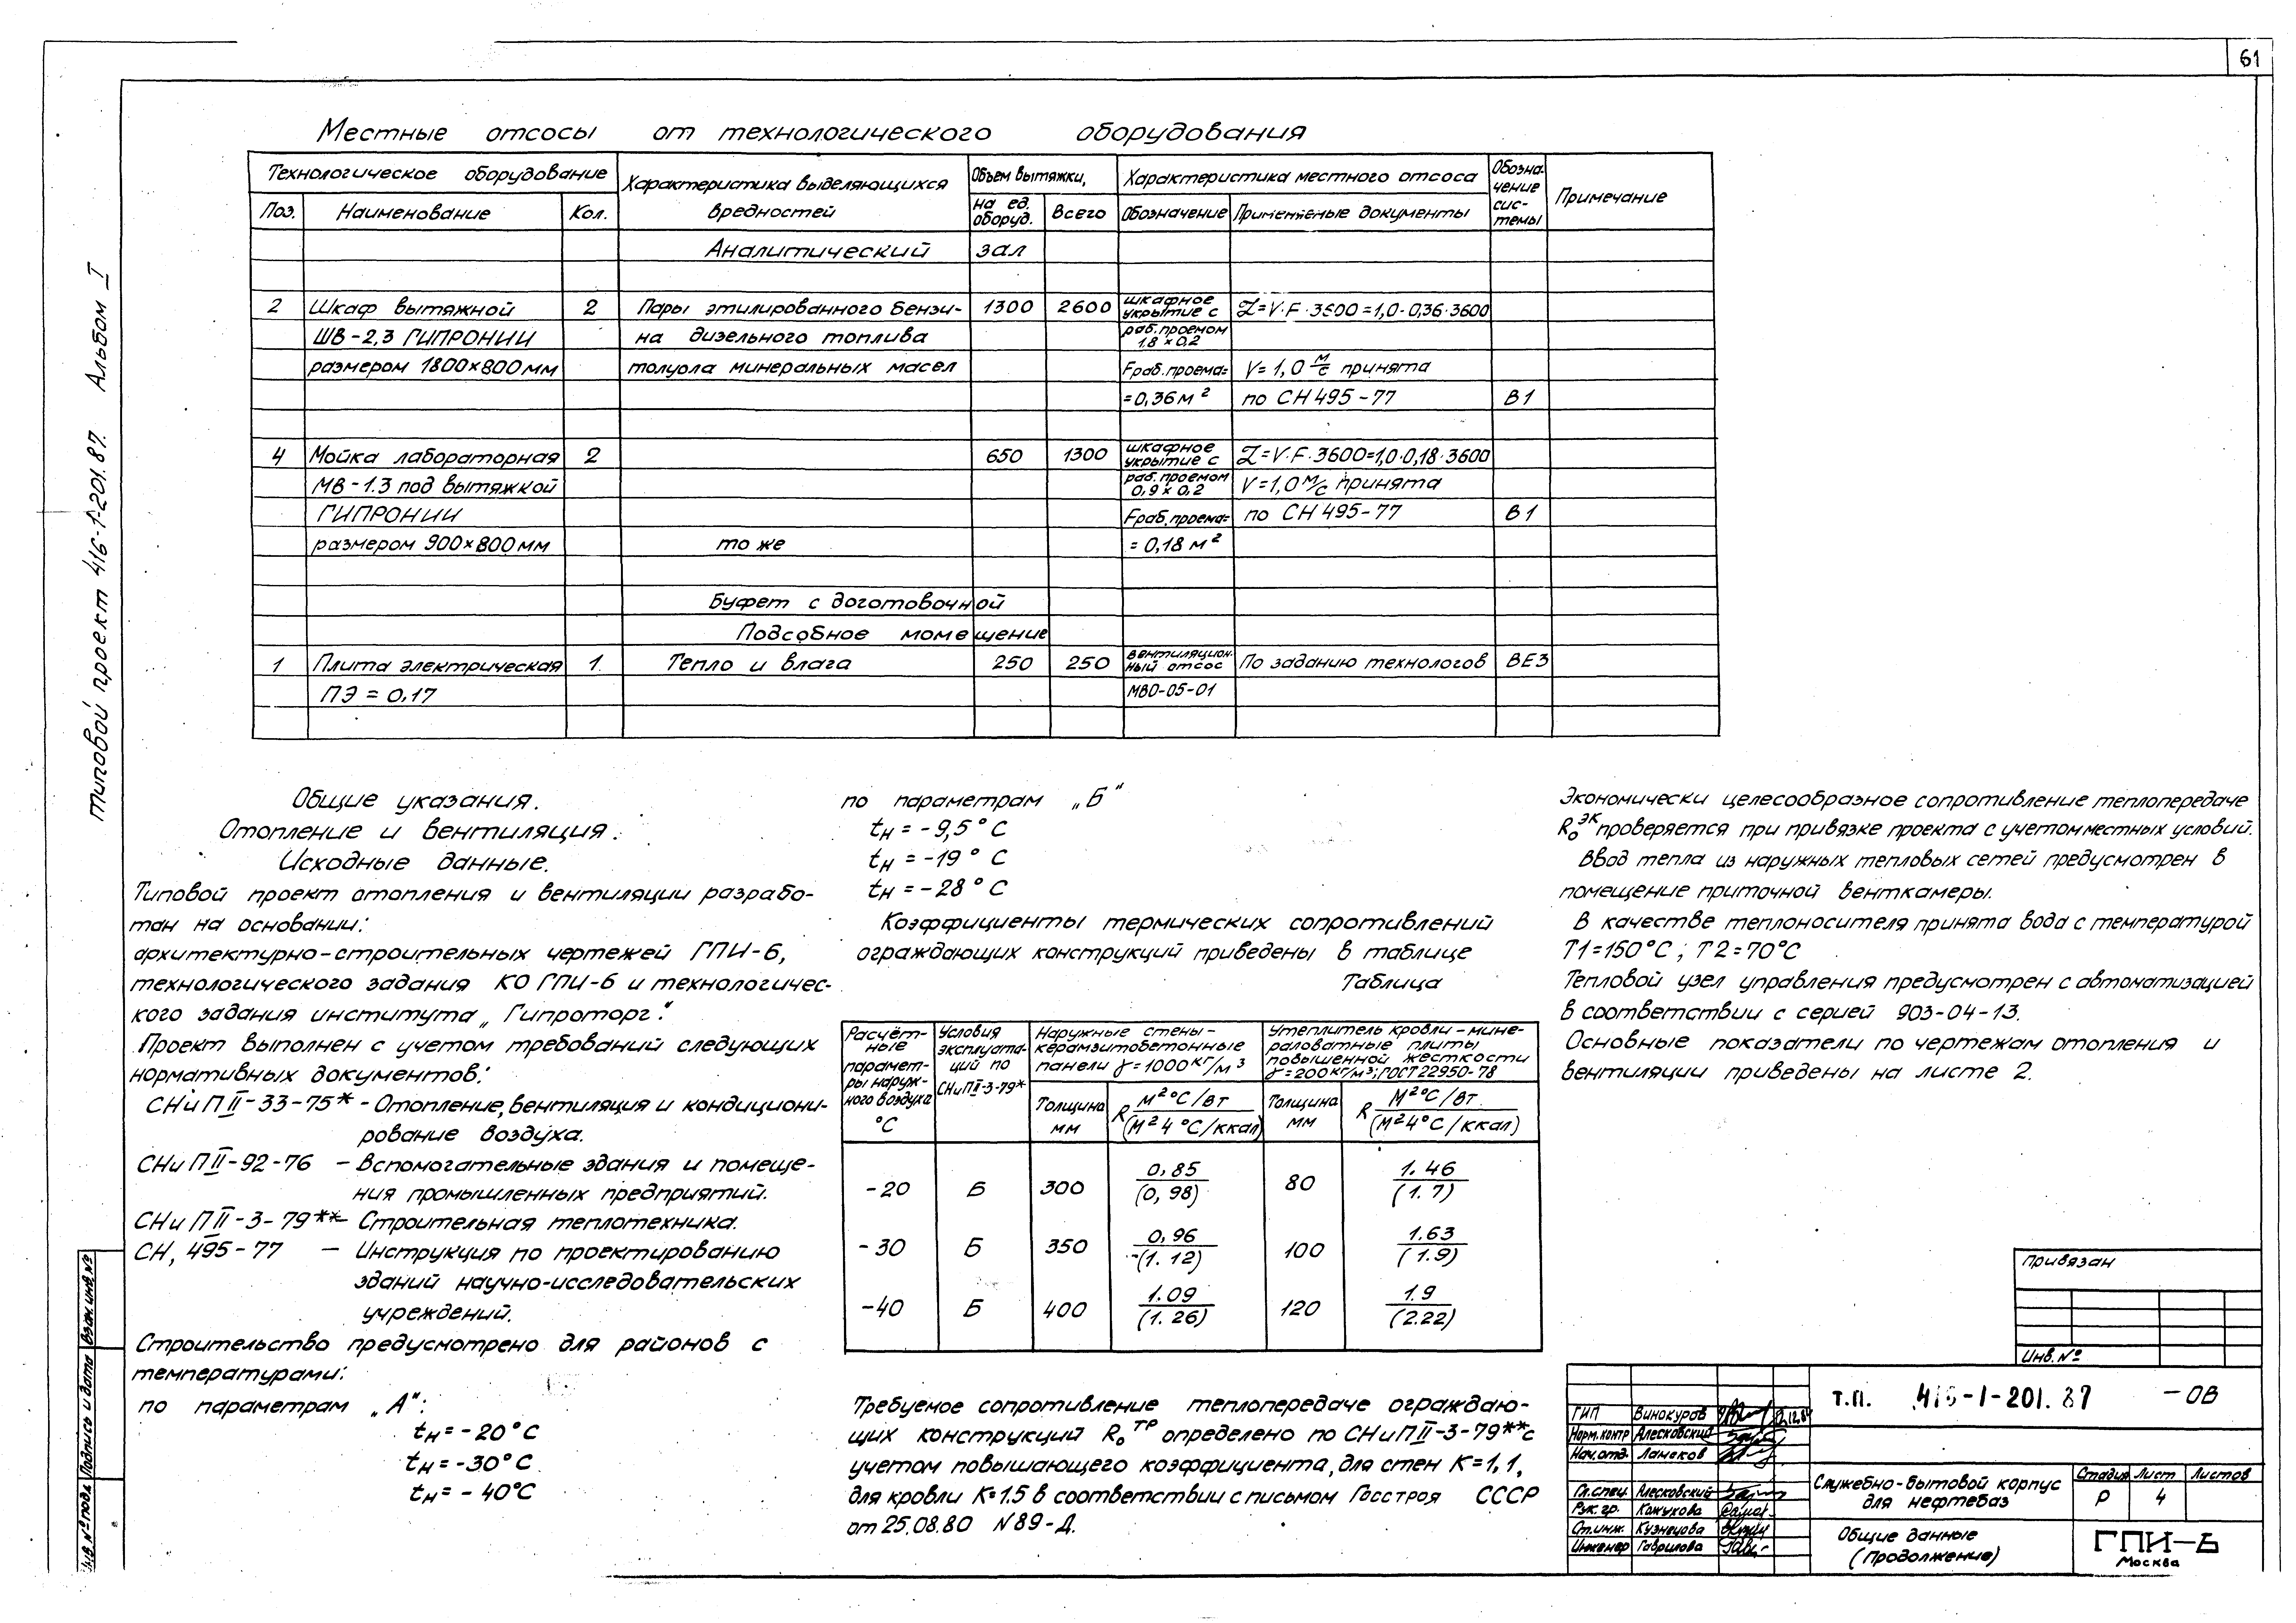 61
Местные отсосы от технологического оборудования
Технологическое оборудование
Характеристика выделяющихся вредностей
Объем вытяжки,
Характеристика местного отсоса
Обозна-
чение
сис-
темы
Примечание
Поз. Наименование Кол. на ед. оборуд. Всего Обозначение Применяемые документы
Аналитический зал
2 Шкаф вытяжной 2 Пары этилированного бензи- 1300 2600 шкафное укрытие с L=V·F·3600=1,0·0,36·3600
ШВ-2,3 ГИПРОНИИ на дизельного топлива раб.проемом 1,8×0,2
размером 1800×800мм толуола минеральных масел Fраб.проема= V=1,0 м/с принята
=0,36м² по СН495-77 В1
4 Мойка лабораторная 2 650 1300 шкафное укрытие с L=V·F·3600=1,0·0,18·3600
МВ-1.3 под вытяжкой раб.проемом 0,9×0,2 V=1,0м/с принята
ГИПРОНИИ Fраб.проема= по СН495-77 В1
размером 900×800мм то же =0,18м²
Буфет с доготовочной
Подсобное момещение
1 Плита электрическая 1. Тепло и влага 250 250 вентиляцион- ный отсос По заданию технологов ВЕ3
ПЭ=0,17 МВО-05-01
типовой проект 416-1-201.87. Альбом I
Общие указания.
Отопление и вентиляция.
Исходные данные.
Типовой проект отопления и вентиляции разрабо-
тан на основании:
архитектурно-строительных чертежей ГПИ-6,
технологического задания КО ГПИ-6 и технологичес-
кого задания института „Гипроторг".
Проект выполнен с учетом требований следующих
нормативных документов:
СНиП II-33-75* - Отопление, вентиляция и кондициони-
рование воздуха.
СНиП II-92-76 - Вспомогательные здания и помеще-
ния промышленных предприятий.
СНиП II-3-79** - Строительная теплотехника.
СН, 495-77 - Инструкция по проектированию
зданий научно-исследовательских
учреждений.
Строительство предусмотрено для районов с
температурами:
по параметрам „А":
tн=-20°С
tн=-30°С
tн=-40°С
по параметрам „Б"
tн=-9,5°С
tн=-19°С
tн=-28°С
Коэффициенты термических сопротивлений
ограждающих конструкций приведены в таблице
Таблица
Расчёт-
ные
парамет-
ры наруж-
ного воздуха
°С
Условия
эксплуата-
ций по
СНиПII-3-79*
Наружные стены-
керамзитобетонные
панели γ=1000кг/м³
Утеплитель кровли-мине-
раловатные плиты
повышенной жесткости
γ=200кг/м³; ГОСТ 22950-78
Толщина мм R м²°С/вт (м²ч°С/ккал) Толщина мм R м²°С/вт (м²ч°С/ккал)
-20 Б 300 0,85 (0,98) 80 1.46 (1.7)
-30 Б 350 0,96 (1.12) 100 1.63 (1.9)
-40 Б 400 1.09 (1.26) 120 1.9 (2.22)
Требуемое сопротивление теплопередаче ограждаю-
щих конструкций Rₒᵀᴾ определено по СНиПII-3-79** с
учетом повышающего коэффициента, для стен К=1,1,
для кровли К=1.5 в соответствии с письмом Госстроя СССР
от 25.08.80 N89-Д.
Экономически целесообразное сопротивление теплопередаче
Rₒэк проверяется при привязке проекта с учетом местных условий.
Ввод тепла из наружных тепловых сетей предусмотрен в
помещение приточной венткамеры.
В качестве теплоносителя принята вода с температурой
Т1=150°С; Т2=70°С
Тепловой узел управления предусмотрен с автоматизацией
в соответствии с серией 903-04-13.
Основные показатели по чертежам отопления и
вентиляции приведены на листе 2.
Привязан
Инв.№
Т.П. 416-1-201.87 -ОВ
ГИП Винокуров
Норм.контр Алесковский
Нач.отд. Ламеков
Гл.спец. Алесковский
Рук.гр. Кожухова
Ст.инж. Кузнецова
Инженер Гаврилова
Служебно-бытовой корпус
для нефтебаз
Стадия Лист Листов
Р 4
Общие данные
(Продолжение)
ГПИ-6
Москва
Инв.№ подл. Подпись и дата Взам.инв.№